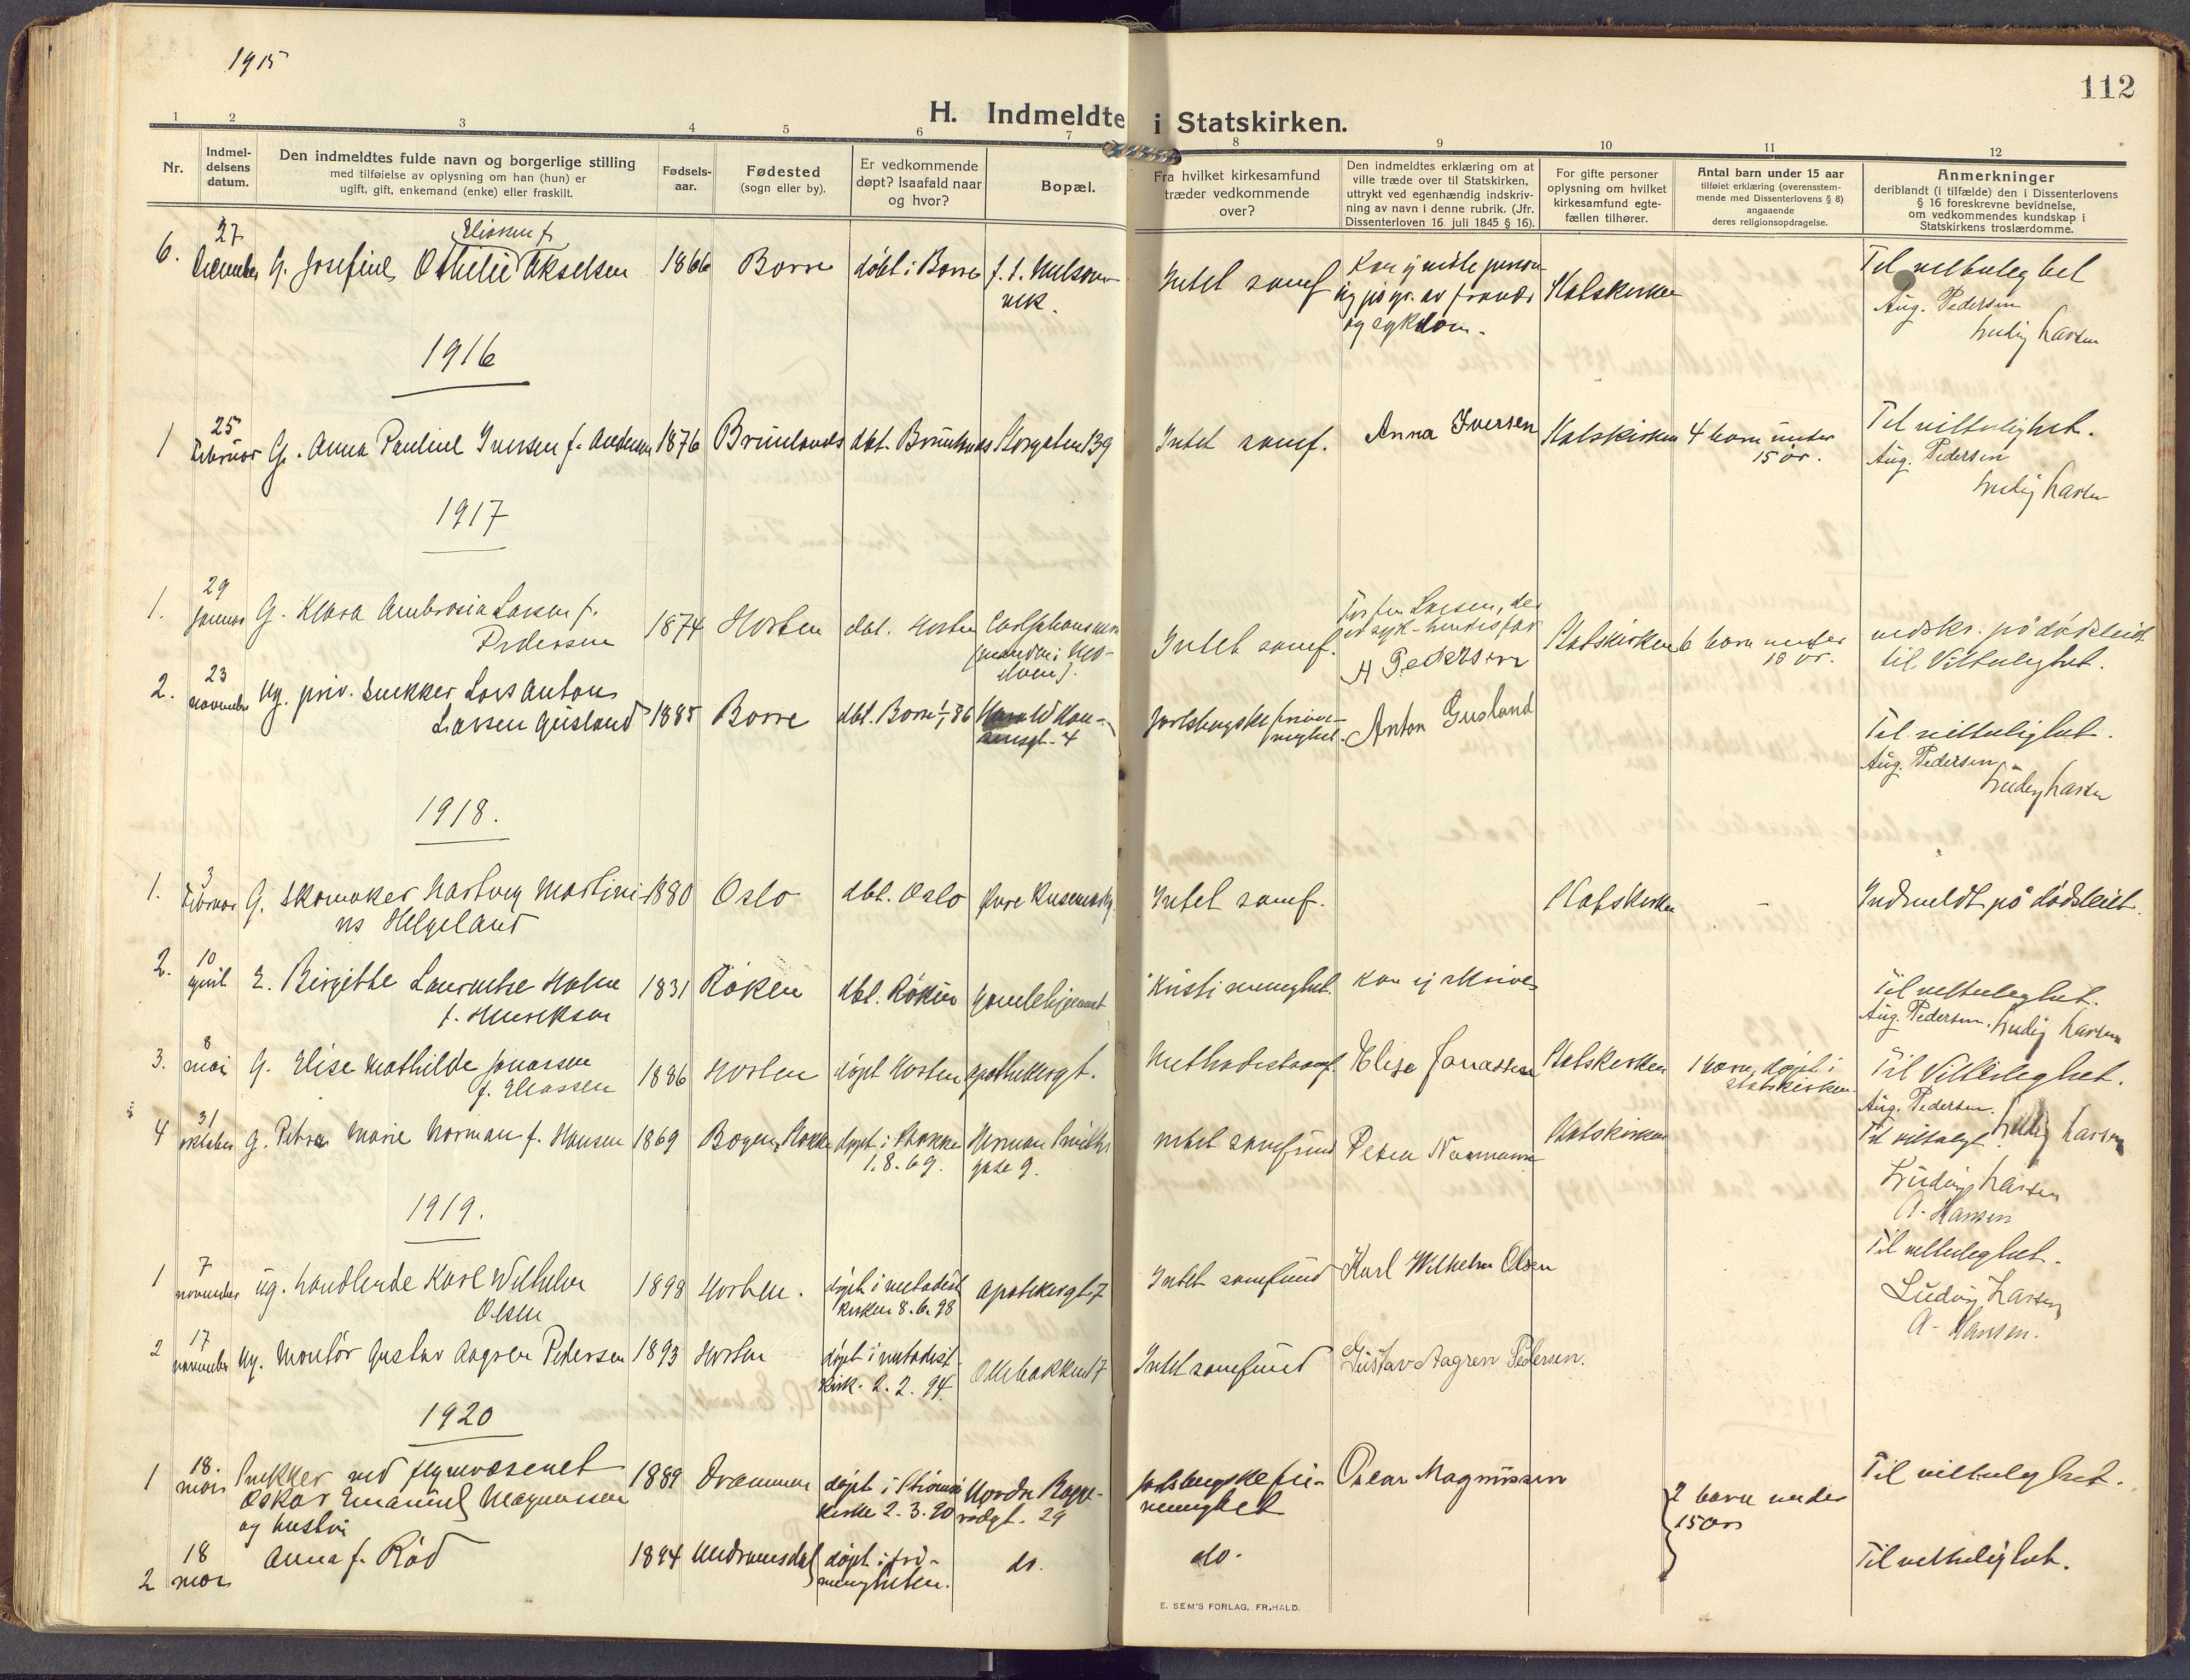 1915
112
H. Indmeldte i Statskirken.
1 2 3 4 5 6 7 8 9 10 11 12
Nr.
Indmel-
delsens
datum.
Den indmeldtes fulde navn og borgerlige stilling
med tilføielse av oplysning om han (hun) er
ugift, gift, enkemand (enke) eller fraskilt.
Fødsels-
aar.
Fødested
(sogn eller by).
Er vedkommende
døpt? Isaafald naar
og hvor?
Bopæl.
Fra hvilket kirkesamfund
træder vedkommende
over?
Den indmeldtes erklæring om at
ville træde over til Statskirken,
uttrykt ved egenhændig indskriv-
ning av navn i denne rubrik. (Jfr.
Dissenterloven 16. juli 1845 § 16).
For gifte personer
oplysning om hvilket
kirkesamfund egte-
fællen tilhører.
Antal barn under 15 aar
tilføiet erklæring (overensstem-
mende med Dissenterlovens § 8)
angaaende
deres religionsopdragelse.
Anmerkninger
deriblandt (i tilfælde) den i Dissenterlovens
§ 16 foreskrevne bevidnelse,
om vedkommendes kundskap i
Statskirkens troslærdomme.
6.
27
december
Eliassen f.
G. Josefine Othilie Akselsen
1866
Borre
døbt i Borre
Intet samf
og sykdom.
Statskirken
Til vitterlighet
Aug. Pedersen
Ludvig Larsen
1916
1
25
februar
G. Anna Pauline Iversen f. Andersen
1876
Brunlanes
dbt. Brunlanes
Storgaten 139
Intet samf.
Anna Iversen
Statskirken
4 barn under
15 år.
Til vitterlighet.
Aug. Pedersen
Ludvig Larsen
1917
1.
29
januar
G. Klara Ambrosia Larsen f.
Pedersen
1874
Horten
dbt. Horten
Intet samf.
For fru Larsen, der
er syk - hendes far
A Pedersen
Statskirken
6 barn under
15 år.
indskr. på dødsleiet
til Vitterlighet.
2.
23
november
Ug. priv. snekker Lars Anton
Larsen Gusland
1885
Borre
dbt. Borre 1/1 86
Harald Han-
sensgt. 4
Jarlsbergske frime-
nighet.
Anton Gusland
Til vitterlighet.
Aug. Pedersen
Ludvig Larsen
1918.
1.
3
februar
G. Skomaker Hartvig Martini-
us Helgeland
1880
Oslo
dbt. Oslo
Intet samf.
Statskirken
-
Indmeldt på dødsleiet.
2.
10
april
E. Birgitte Laurentse Holm
f. Henriksen
1831
Røken
dbt. Røken
Gamlehjemmet
Kristi menighet.
Kan ej skrive
Til vitterlighet.
Aug. Pedersen. Ludvig Larsen
3.
8
mai
G. Elise Mathilde Jonassen
f. Eliassen
1886
Horten
døpt Horten
Apothekergt.
Methodistsamf.
Elise Jonassen
Statskirken
1 barn, døpt i
statskirken
Til Vitterlighet.
Aug. Pedersen.
Ludvig Larsen
4
31
oktober
G. Petra Marie Norman f. Hansen
1869
Bogen, Stokke
døpt i Stokke
1.8.69.
Herman Smiths
gate 9.
intet samfund
Petra Normann
Statskirken
Til vitterlighet.
Ludvig Larsen
A. Hansen
1919.
1
7
november
ug. handlende Karl Wilhelm
Olsen
1898
Horten.
døpt i metodist
kirken 8.6.98
Apotekergt. 7
Intet samfund
Karl Wilhelm Olsen
Til vitterlighet.
Ludvig Larsen
A. Hansen.
2
17
november
Ug. Montør Gustav Aagren Pedersen
1893
Horten
døpt i metodist
kirk. 2.2.94
Ollebakken 7
Intet samfund
Gustav Aagren Pedersen.
1920
1
18.
mars
Snekker ved flyvevæsenet
Oskar Emanuel Magnussen
og hustru
1889
Drammen
døpt i Strømsø
kirke 2.3.90
Nordre Bagge-
rødgt. 29
Jarlsbergske fri-
menighet
Oscar Magnussen
2 barn under
15 år
Til vitterlighet.
2
18
mars
Anna f. Rød
1894
Undrumsdal
døpt i fri-
menigheten.
do.
do.
Til vitterlighet.
E. SEM'S FORLAG, FR.HALD.